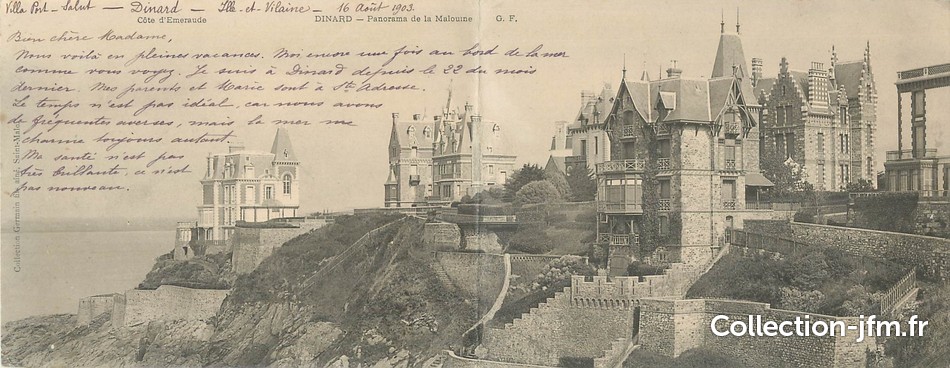 Villa Port-Salut - Dinard - Ille-et-Vilaine - 16 Août 1903.
Côte d'Emeraude
DINARD — Panorama de la Malouine
G. F.
Bien chère Madame,
Nous voilà en pleines vacances. Moi encore une fois au bord de la mer
comme vous voyez. Je suis à Dinard depuis le 22 du mois
dernier. Mes parents et Marie sont à Ste Adresse.
Le temps n'est pas idéal, car nous avons
de fréquentes averses, mais la mer me
charme toujours autant.
Ma santé n'est pas
très brillante, ce n'est
pas nouveau.
Collection Germain fils aîné, Saint-Malo
Collection-jfm.fr